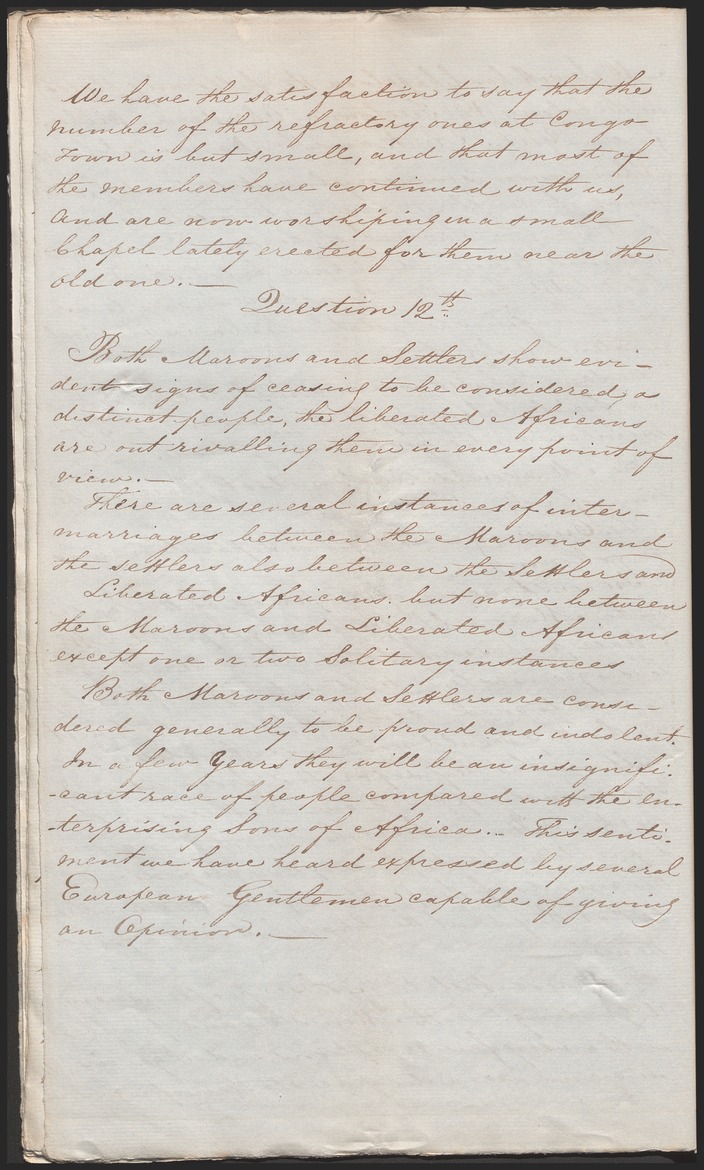 We have the satisfaction to say that the
number of the refractory ones at Congo
Town is but small, and that most of
the members have continued with us,
And are now worshiping in a small
Chapel lately erected for them near the
old one. —
Question 12th
Both Maroons and Settlers show evi-
dent signs of ceasing to be considered, a
distinct people, the liberated Africans
are out rivalling them in every point of
view. —
There are several instances of inter-
marriages between the Maroons and
the settlers also between the Settlers and
Liberated Africans. but none between
the Maroons and Liberated Africans
except one or two Solitary instances
Both Maroons and Settlers are consi-
dered generally to be proud and indolent.
In a few Years they will be an insignifi-
-cant race of people compared with the en-
-terprising Sons of Africa.. This senti-
ment we have heard expressed by several
European Gentlemen capable of giving
an Opinion. —